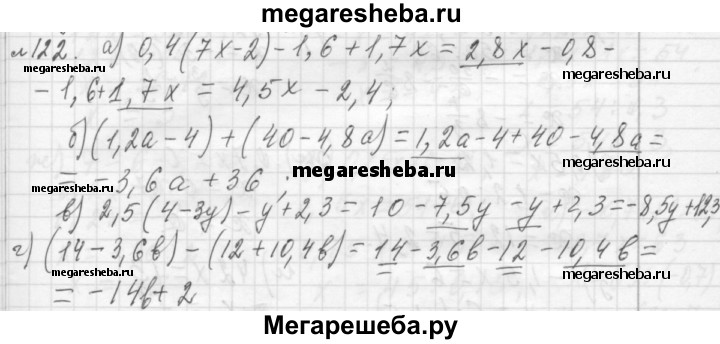 megaresheba.ru
№122. а) 0,4(7x-2)-1,6+1,7x = 2,8x - 0,8-
- 1,6+1,7x = 4,5x - 2,4;
megaresheba.ru
б) (1,2a-4)+(40-4,8a)=1,2a-4+40-4,8a=
megaresheba.ru
= -3,6a+36;
megaresheba.ru
megaresheba.ru
в) 2,5(4-3y)-y+2,3= 10 -7,5y -y+2,3=-8,5y+12,3
г) (14-3,6b)-(12+10,4b)=14-3,6b-12-10,4b=
= -14b+2
megaresheba.ru
megaresheba.ru
Мегарешеба.ру